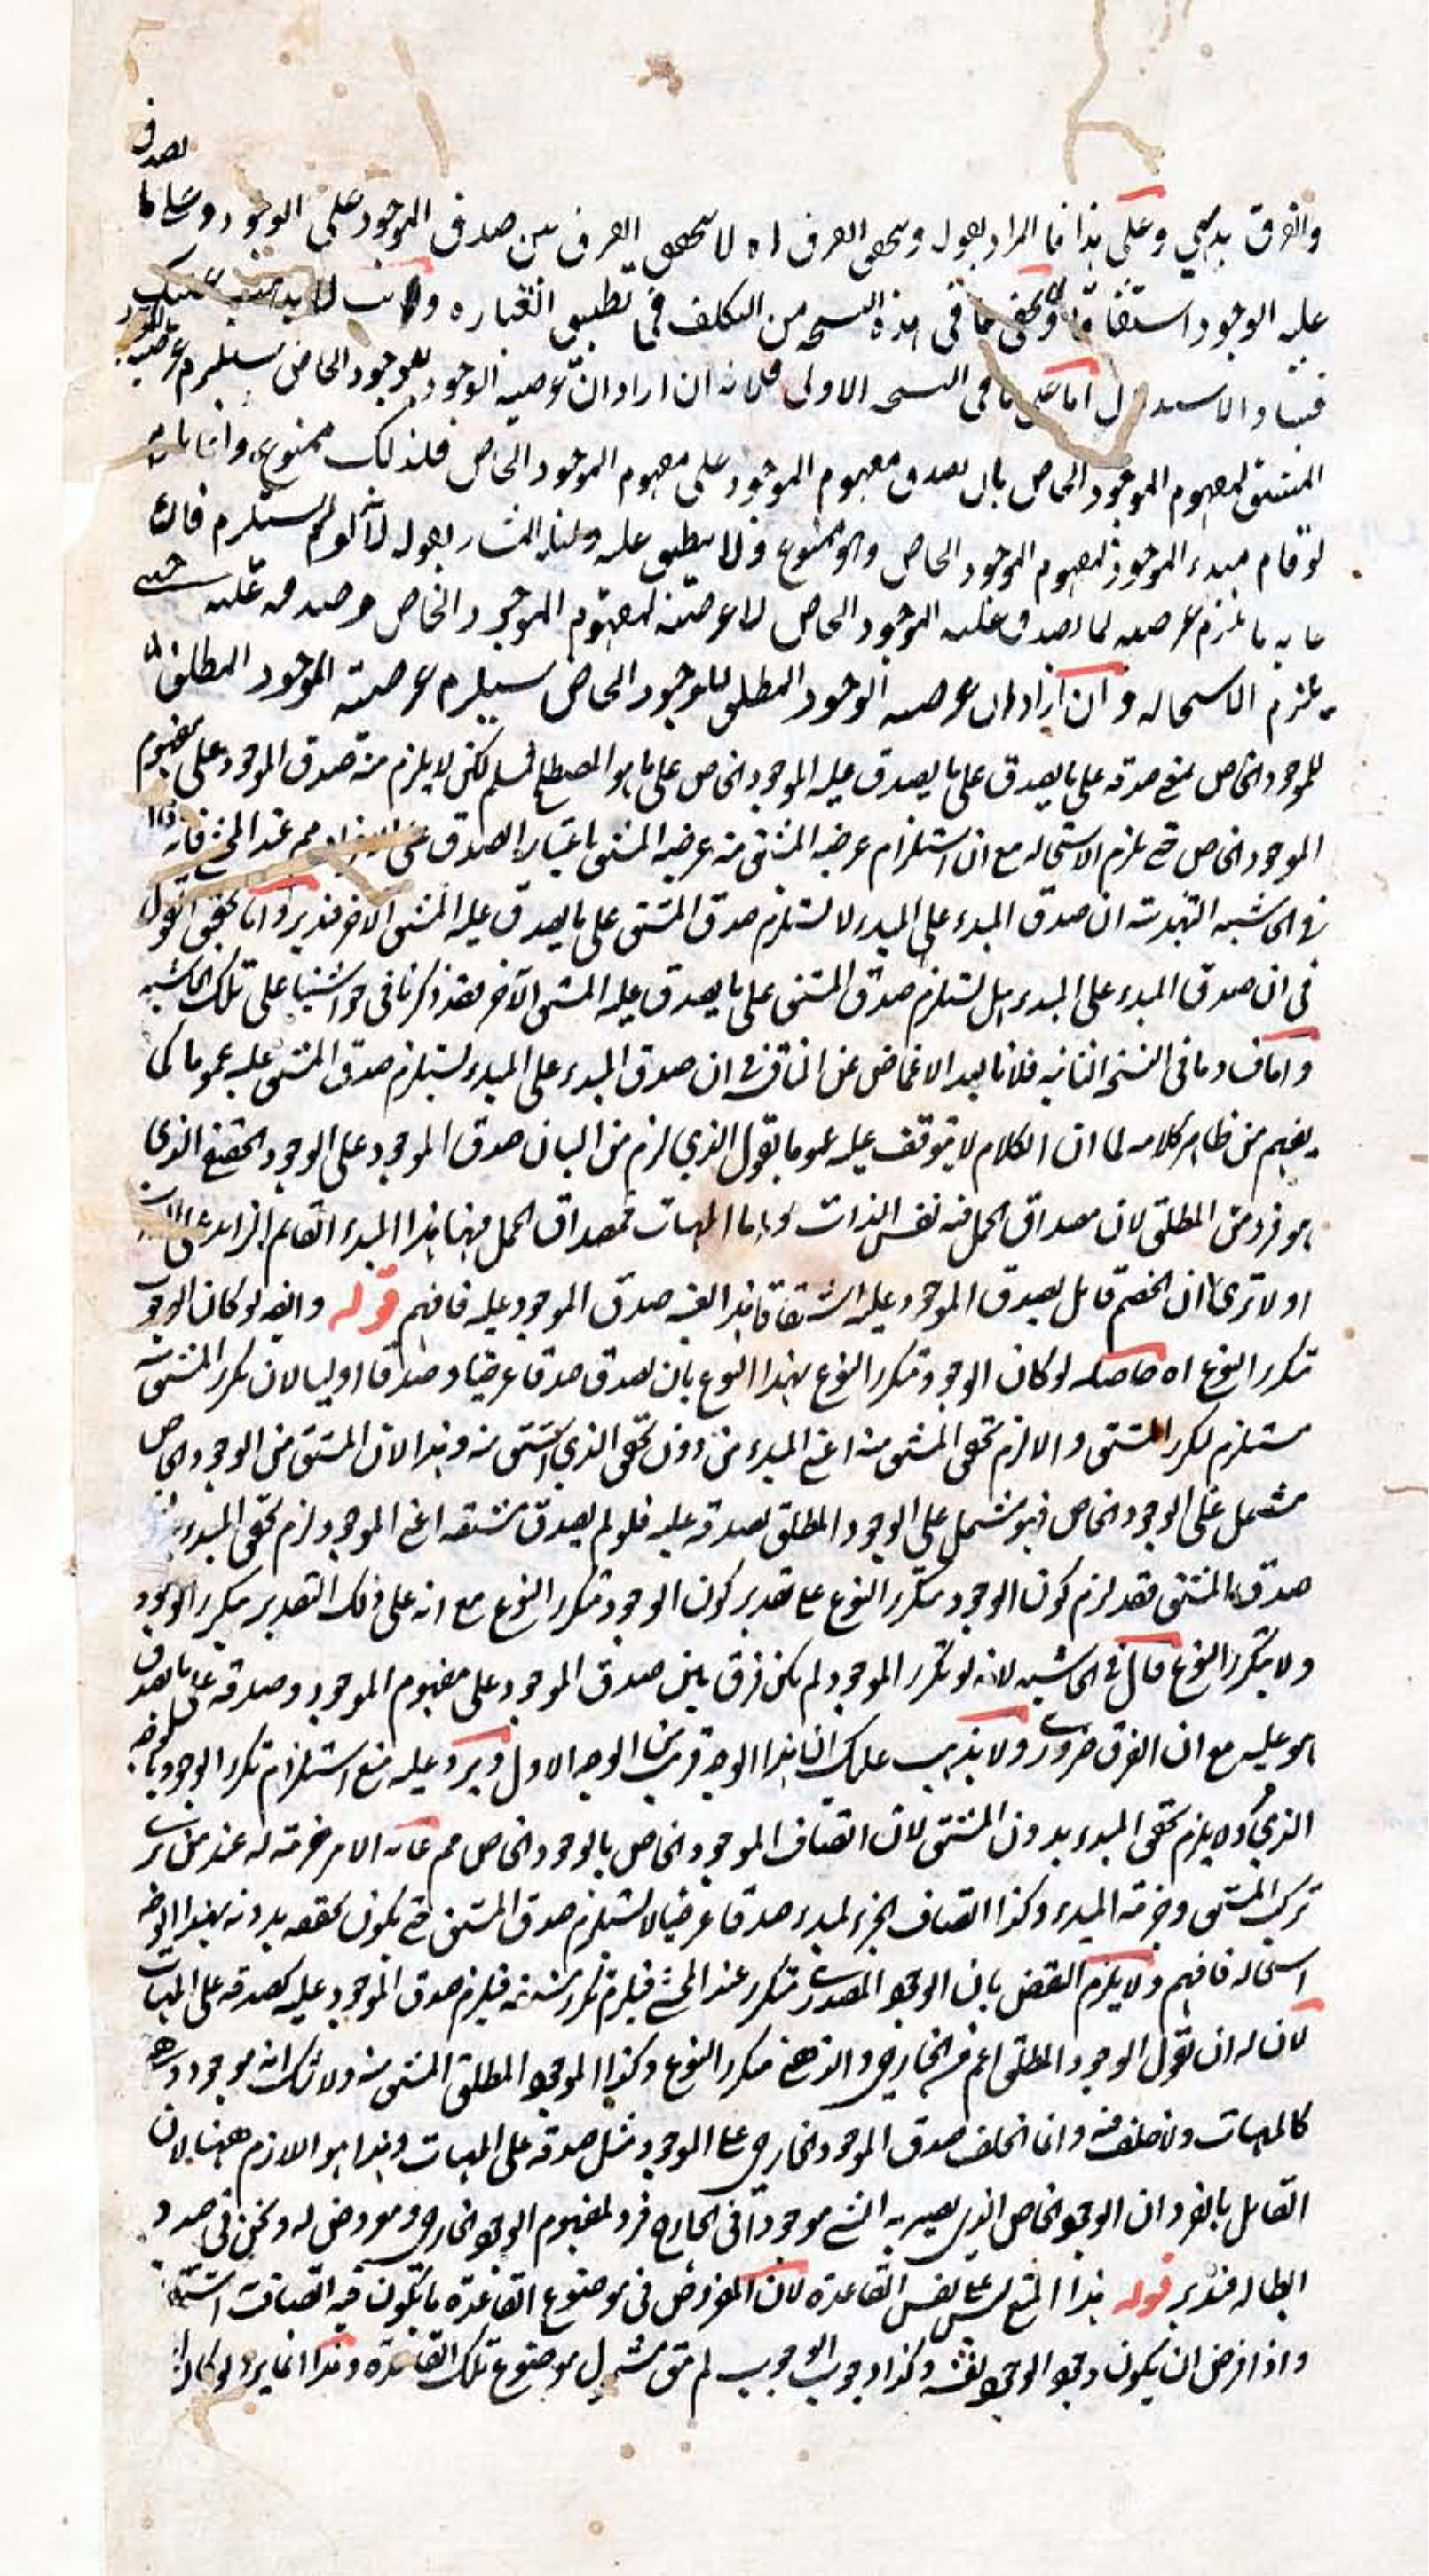 يصدق
والفرق بديهي وعلى هذا فالمراد بقول وتحقق الفرق اه لا يتحقق الفرق بين صدق الموجود على الوجود وعلى ما
عليه الوجود اشتقاقا ولا يخفى ما في هذه النسخة من التكلف في تطبيق العبارة ولا يذهب عليك
فساد الاستدلال اما على ما في النسخة الاولى فلانه ان اراد ان عرضية الوجود للوجود الخاص يستلزم عرضية الموجود
المشتق لمفهوم الموجود الخاص بان يصدق مفهوم الموجود على مفهوم الموجود الخاص فلذلك ممنوع وانما يلزم
لو قام مبدء الموجود لمفهوم الموجود الخاص وهو ممنوع ولا ينطبق عليه دليله المشار بقوله لانه لو لم يستلزم فان
غاية ما يلزم عرضيته لما يصدق عليه الموجود الخاص لا عرضيته لمفهوم الموجود الخاص وصدقه عليه حتى
يلزم الاستحالة وان اراد ان عرضية الوجود المطلق للوجود الخاص يستلزم عرضية الموجود المطلق
للموجود الخاص بمعنى صدقه على ما يصدق على ما يصدق عليه الموجود الخاص على ما هو المصطلح فمسلم لكن لا يلزم منه صدق الموجود على مفهوم
الموجود الخاص حتى يلزم الاستحالة مع ان استلزام عرضية المشتق منه عرضية المشتق باعتبار الصدق على الافراد مم عند المحشي فانه قال
في الحاشية التهذيبية ان صدق المبدء على المبدء لا يستلزم صدق المشتق على ما يصدق عليه المشتق الاخر فتدبر واما تحقيق القول
في ان صدق المبدء على المبدء هل يستلزم صدق المشتق على ما يصدق عليه المشتق الآخر فقد ذكرنا في حواشينا على تلك الحاشية
واما فساد ما في النسخة الثانية فلانا بعد الاغماض عن المناقشة في ان صدق المبدء على المبدء يستلزم صدق المشتق عليه عموما كما
يفهم من ظاهر كلامه لما ان الكلام لا يتوقف عليه عموما نقول الذي لزم من البيان صدق الموجود على الوجود الحقيقي الذي
هو فرد من المطلق لان مصداق الحمل فيه نفس الذات واما المهيات فمصداق الحمل فيها هذا المبدء القائم الزائد على الذات
اولا ترى ان الخصم قائل بصدق الموجود عليه اشتقاقا فهذا الغير صدق الموجود عليه فافهم قوله وايضا لو كان الوجود
متكرر النوع اه حاصله لو كان الوجود متكرر النوع بهذا النوع بان يصدق صدقا عرضيا وصدقا اوليا لان تكرر المشتق منه
مستلزم لتكرر المشتق والا لزم تحقق المشتق منه اعني المبدء من دون تحقق الذي اشتق منه وهذا لان المشتق من الوجود الخاص
مشتمل على الوجود الخاص فهو مشتمل على الوجود المطلق لصدقه عليه فلو لم يصدق مشتقه اعني الموجود لزم تحقق المبدء بدون
صدق المشتق فقد لزم كون الوجود متكرر النوع على تقدير كون الوجود متكرر النوع مع انه على ذلك التقدير متكرر الوجود
ولا يتكرر النوع قال في الحاشية لانه لو تكرر الموجود لم يكن فرق بين صدق الموجود على مفهوم الموجود وصدقه على ما يصدق
هو عليه مع ان الفرق ضروري ولا يذهب عليك ان هذا الوجه قريب من الوجه الاول ويرد عليه منع استلزام تكرر الوجود بالوجه
الذي ولا يلزم تحقق المبدء بدون المشتق لان اتصاف الموجود الخاص بالوجود الخاص مم غاية الامر جزئيته له عند من يرى
تركب المشتق وجزئية المبدء وكذا اتصاف الجزء لمبدء صدقا عرضيا لا يستلزم صدق المشتق حتى يكون تحققه بدونه بهذا الوجه
استحالة فافهم ولا يلزم النقض بان الوجود المصدري متكرر عند المحشي فيلزم تكرر مشتقه فيلزم صدق الموجود عليه كصدقه على المهيات
لان له ان نقول الوجود المطلق اعم من الخارجي والذهني متكرر النوع وكذا الموجود المطلق المشتق منه ولا شك انه موجود ذهني
كالمهيات ولا خلف فيه وانما الخلف صدق الموجود الخارجي على الوجود مثل صدقه على المهيات وهذا هو اللازم ههنا لان
القائل بالفرد ان الوجود الخاص الذي يصير به الشيء موجودا في الخارج فرد لمفهوم الوجود الخارجي ومعروض له ونحن في صدد
ابطاله فتدبر قوله هذا المنع ليس على نفس القاعدة لان المفروض في موضوع القاعدة ما يكون فيه اتصاف اشتقاقي
واذا فرض ان يكون وجود الوجود نفسه وكذا وجوب الوجوب لم يبق مشمول موضوع تلك القاعدة وهذا انما يرد لو كان